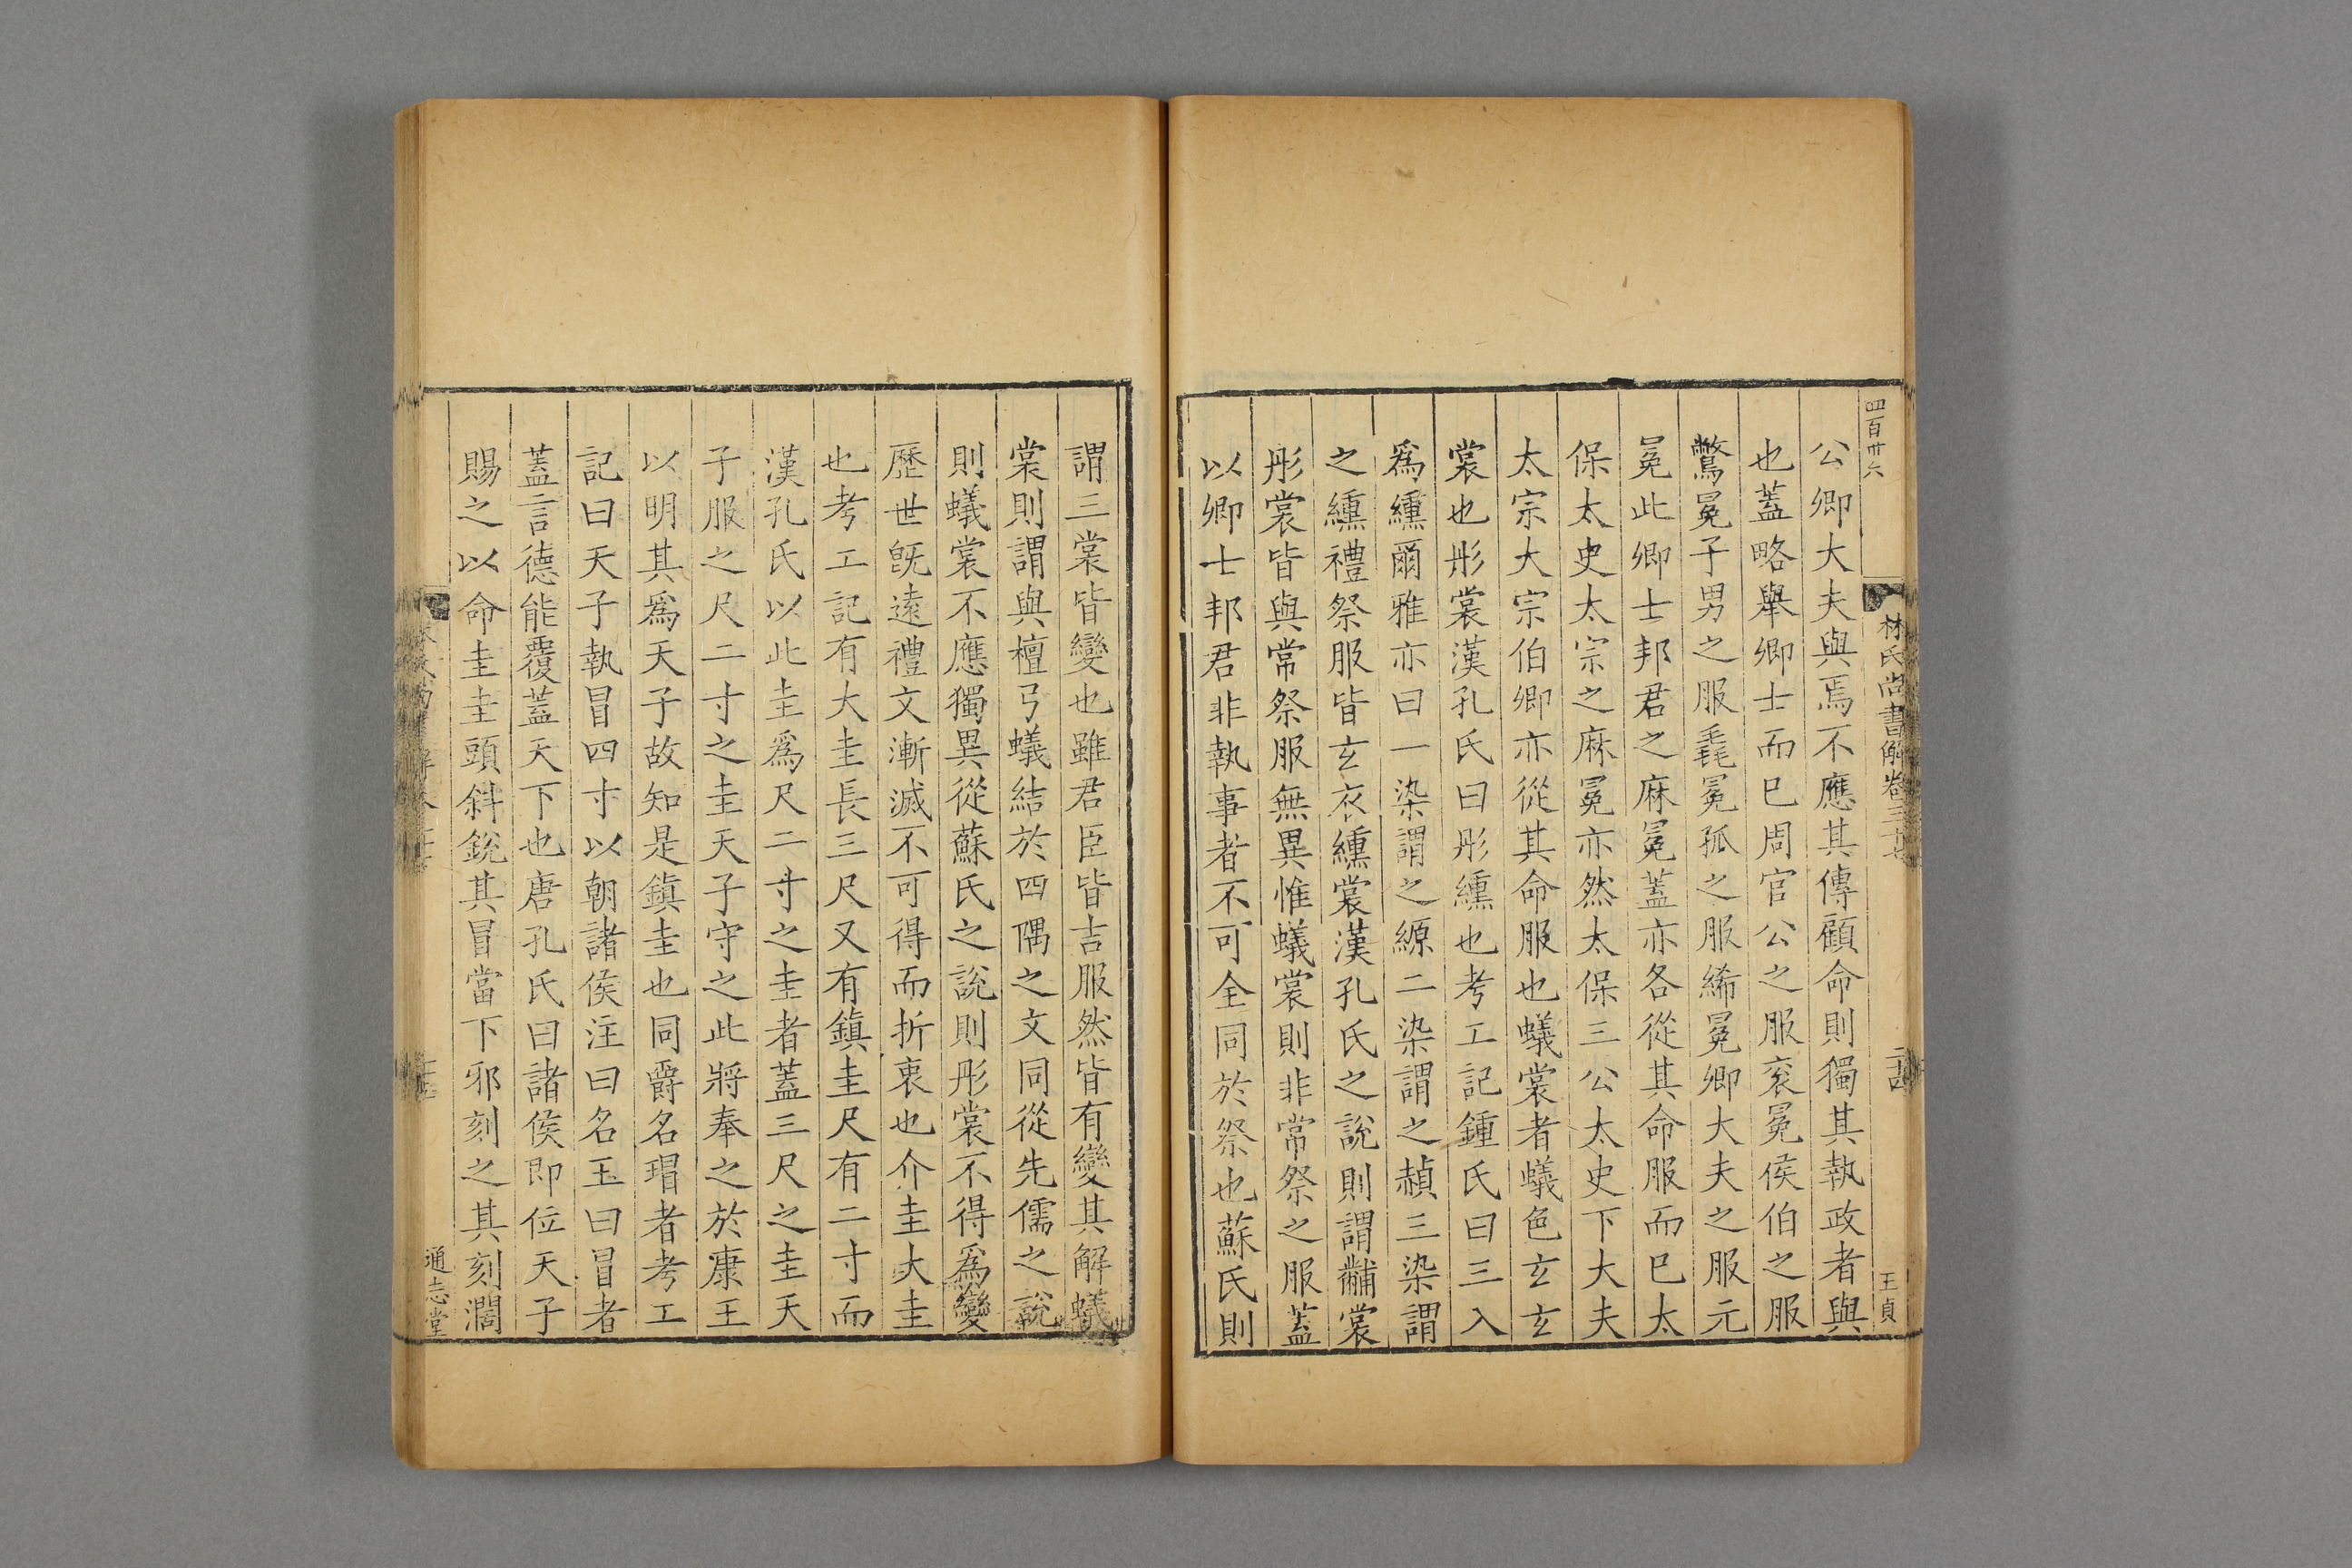 四百卅六
林氏尚書解卷三十七
王貞
公卿大夫與焉不應其傳顧命則獨其執政者與
也蓋略舉卿士而已周官公之服衮冕侯伯之服
鷩冕子男之服毳冕孤之服絺冕卿大夫之服元
冕此卿士邦君之麻冕蓋亦各從其命服而已太
保太史太宗之麻冕亦然太保三公太史下大夫
太宗大宗伯卿亦從其命服也蟻裳者蟻色玄玄
裳也彤裳漢孔氏曰彤纁也考工記鍾氏曰三入
為纁爾雅亦曰一染謂之縓二染謂之赬三染謂
之纁禮祭服皆玄衣纁裳漢孔氏之說則謂黼裳
彤裳皆與常祭服無異惟蟻裳則非常祭之服蓋
以卿士邦君非執事者不可全同於祭也蘇氏則
謂三裳皆變也雖君臣皆吉服然皆有變其解蟻
裳則謂與檀弓蟻結於四隅之文同從先儒之說
則蟻裳不應獨異從蘇氏之說則彤裳不得為變
歷世旣遠禮文漸滅不可得而折衷也介圭大圭
也考工記有大圭長三尺又有鎮圭尺有二寸而
漢孔氏以此圭為尺二寸之圭者蓋三尺之圭天
子服之尺二寸之圭天子守之此將奉之於康王
以明其為天子故知是鎮圭也同爵名瑁者考工
記曰天子執冒四寸以朝諸侯注曰名玉曰冒者
蓋言德能覆蓋天下也唐孔氏曰諸侯即位天子
賜之以命圭圭頭斜銳其冒當下邪刻之其刻濶
通志堂